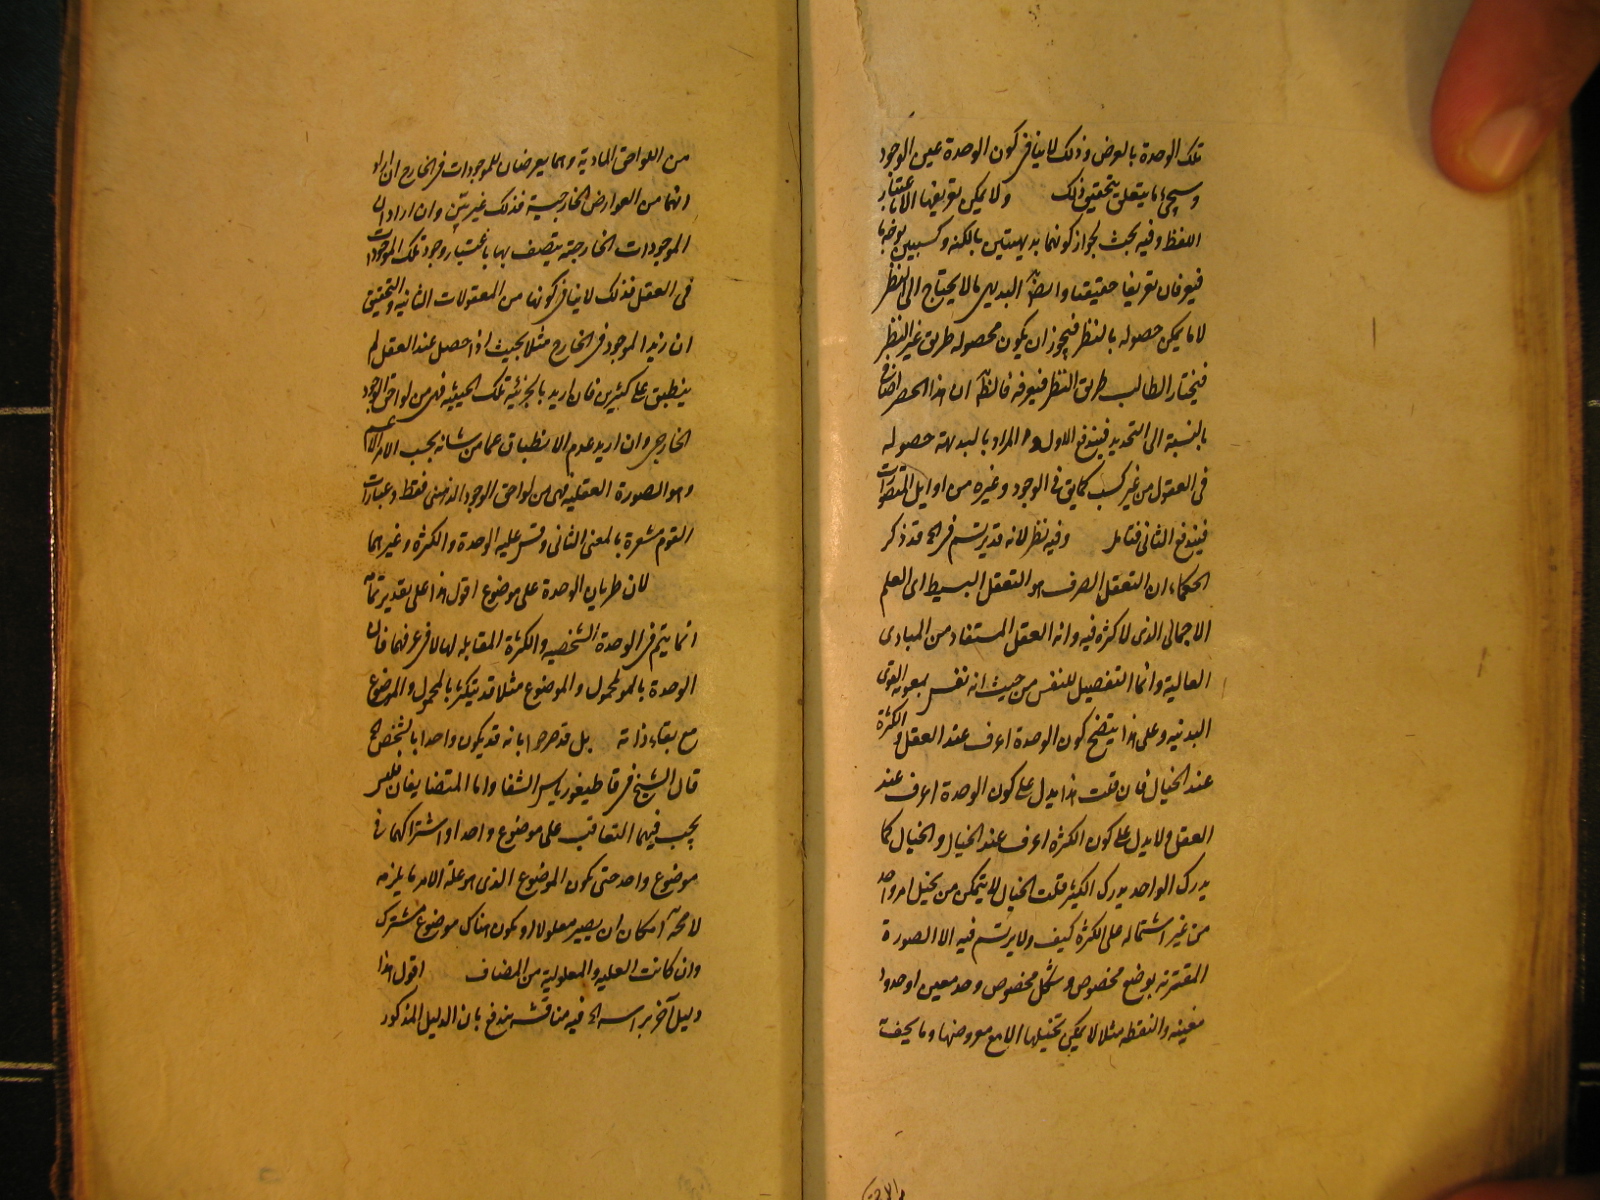 تلك الوحدة بالعرض وذلك لا ينافى كون الوحدة عين الوجود
وسيجئ ما يتعلق بتحقيق ذلك ولا يمكن تعريفها الا باعتبار
اللفظ وفيه بحث لجواز كونهما بديهيتين بالكنه وكسبيين بوجه ما
فيعرفان تعريفا حقيقيا وايضا البديهى ما لا يحتاج الى النظر
لا ما يمكن حصوله بالنظر فيجوز ان يكون لحصوله طريق غير النظر
فيختار الطالب طريق النظر فيعرفه فالظ ان هذا الحصر اضافى
بالنسبة الى التحديد فيندفع الاول والمراد بالبديهة حصوله
فى العقول من غير كسب كما يق فى الوجود وغيره من اوايل التصورات
فيندفع الثانى فتامل وفيه نظر لانه قد يرتسم فى الخ قد ذكر
الحكماء ان التعقل الصرف هو التعقل البسيط اى العلم
الاجمالى الذى لا كثرة فيه وانه العقل المستفاد من المبادى
العالية وانما التفصيل للنفس من حيث انه نفس بمعونة القوى
البدنيه وعلى هذا يتضح كون الوحدة اعرف عند العقل والكثرة
عند الخيال فان قلت هذا يدل على كون الوحدة اعرف عند
العقل ولا يدل على كون الكثرة اعرف عند الخيال والخيال كما
يدرك الواحد يدرك الكثير قلت الخيال لا يتمكن من تخيل امر واحد
من غير اشتماله على الكثرة كيف ولا يرتسم فيه الا الصورة
المقترنة بوضع مخصوص وشكل مخصوص وحد معين او حدود
معينه والنقطه مثلا لا يمكن تخيلها الا مع معروضها وما يحيف
من اللواحق المادية وهما يعرضان للموجودات فى الخارج ان اراد
انهما من العوارض الخارجية فذلك غير بيّن وان اراد ان
الموجودات الخارجية يتصف بها باعتبار وجود تلك الموجودات
فى العقل فذلك لا ينافى كونها من المعقولات الثانية والتحقيق
ان زيد الموجود فى الخارج مثلا بحيث اذا حصل عند العقل لم
ينطبق على كثيرين فان اريد بالجزئية تلك الحيثيه فهى من لواحق الوجود
الخارجى وان اريد عدم الانطباق عما من شانه بحسب الامر الاعم
وهو الصورة العقلية فهى من لواحق الوجود الذهنى فقط وعبارات
القوم مشعرة بالمعنى الثانى وقس عليه الوحدة والكثرة وغيرهما
لان طريان الوحدة على موضوع اقول هذا على تقدير تمامه
انما يتم فى الوحدة الشخصيه والكثرة المقابلة لها لا فى غيرهما فان
الوحدة بالمحمول والموضوع مثلا قد يتكثر بالمحمول والموضوع
مع بقاء ذاته بل قد صرحوا بانه قد يكون واحدا بالشخص الخ
قال الشيخ فى قاطيغورياس الشفا واما المتضايفان فليس
يجب فيهما التعاقب على موضوع واحد او اشتراكهما فى
موضوع واحد حتى يكون الموضوع الذى هو علة لامر ما يلزمه
لا محة امكان ان يصير معلولا او يكون هناك موضوع مشترك
وان كانت العلية والمعلولية من المضاف اقول هذا
دليل آخر براسه الخ فيه مناقشه يندفع بان الدليل المذكور